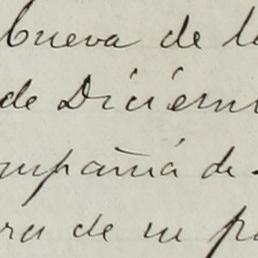 Cueva de l
de Diciem
mpañia de
ra de su pa